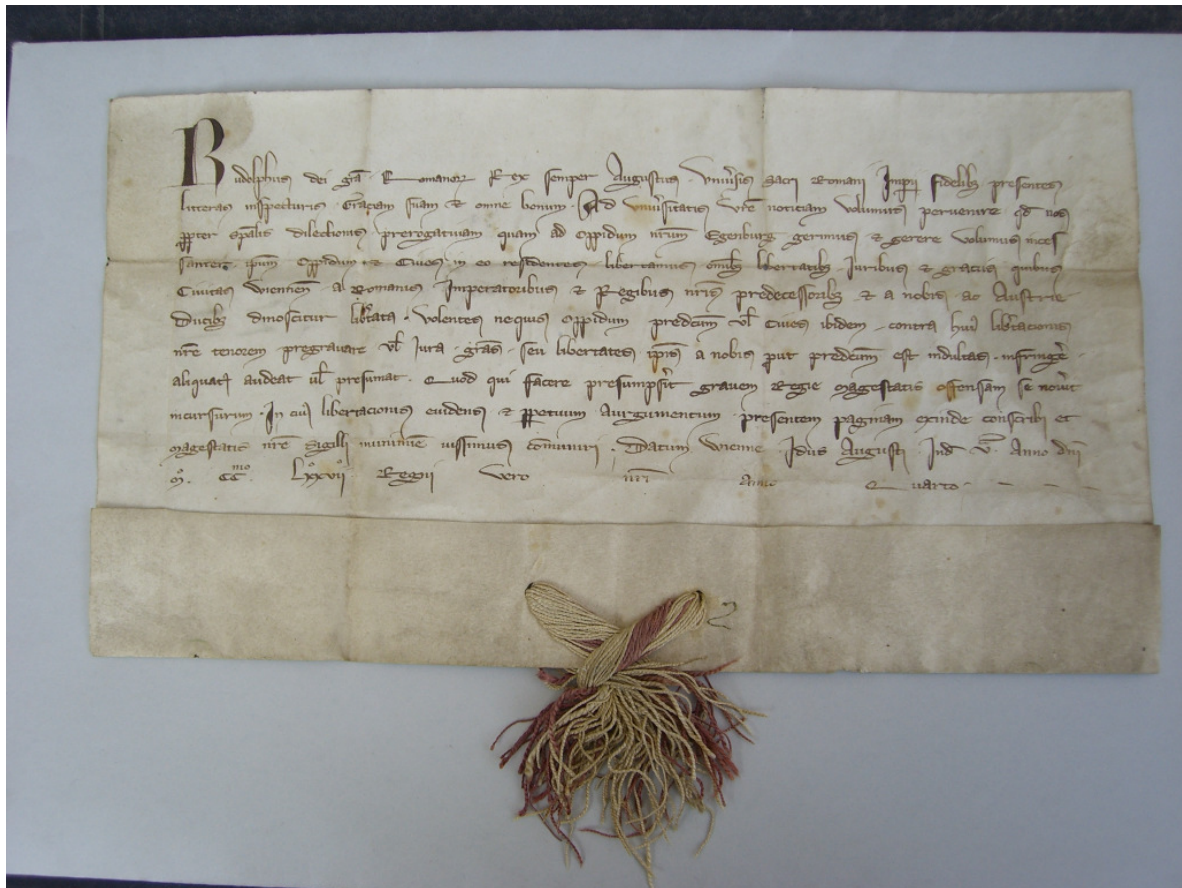 Rudolphus dei gr̄a Romanoꝝ Rex semper Augustus . Vniu̾sis sacri Romani Imꝑij fidelibꝫ presentes
litteras inspecturis Graciam suam et omne bonum . Ad vniu̾sitatis vr̄e noticiam volumus peruenire qd nos
ꝓpter sp̄alis dilectionis prerogatiuam quam ad oppidum nr̄um Egenburg gerimus et gerere volumus inces
santer ip̄um oppidum et Ciues in eo residentes libertamus om̄ibꝫ libertatibꝫ Iuribus et graciis quibus
Ciuitas Wiennen̄ a Romanis Imperatoribus et Regibus nr̄is predecessoribꝫ et a nobis ac Austrie
Ducibꝫ dinoscitur lib̾tata . volentes nequis oppidum predc̄um vl̄ Ciues ibidem contra huiꝰ lib̾tacionis
nr̄e tenorem pregrauare vl̄ Iura . gr̄as . seu libertates ip̄is a nobis put predc̄um est indultas . infring̾e
aliquatꝰ audeat vl̄ presumat . Quod qui facere presumps̾it grauem Regie magestatis offensam se nou̾it
incursurum . In cuiꝰ libertacionis euidens et ꝑpetuum Aurgumentum presentem paginam exinde conscribi et
magestatis nr̄e Sigilli munimīe iussimus cōmuniri . Datum Wienne . Idus Augusti . Ind̄ . v . Anno dn̄i
mº. CCmo Lxxvii Regni vero nr̄i anno Quarto .